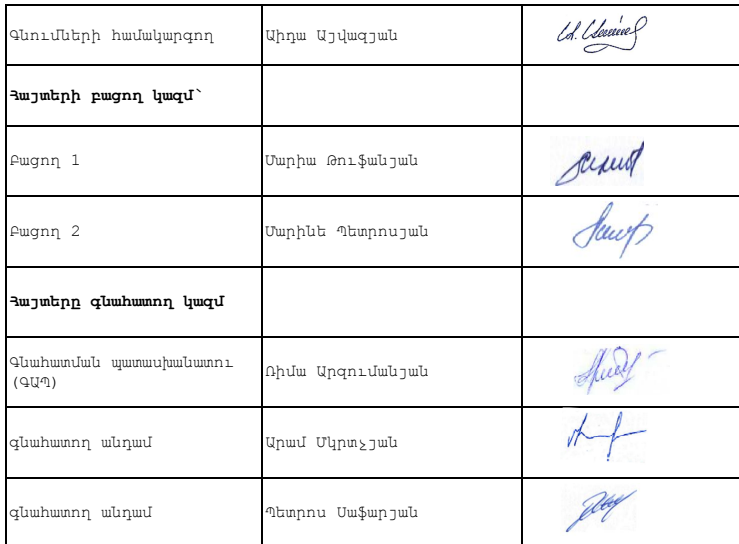 Գնումների համակարգող Աիդա Այվազյան
Հայտերի բացող կազմ՝
Բացող 1 Մարիա Թուֆանյան
Բացող 2 Մարինե Պետրոսյան
Հայտերը գնահատող կազմ
Գնահատման պատասխանատու
(ԳԱՊ) Ռիմա Արզումանյան
գնահատող անդամ Արամ Մկրտչյան
գնահատող անդամ Պետրոս Սաֆարյան